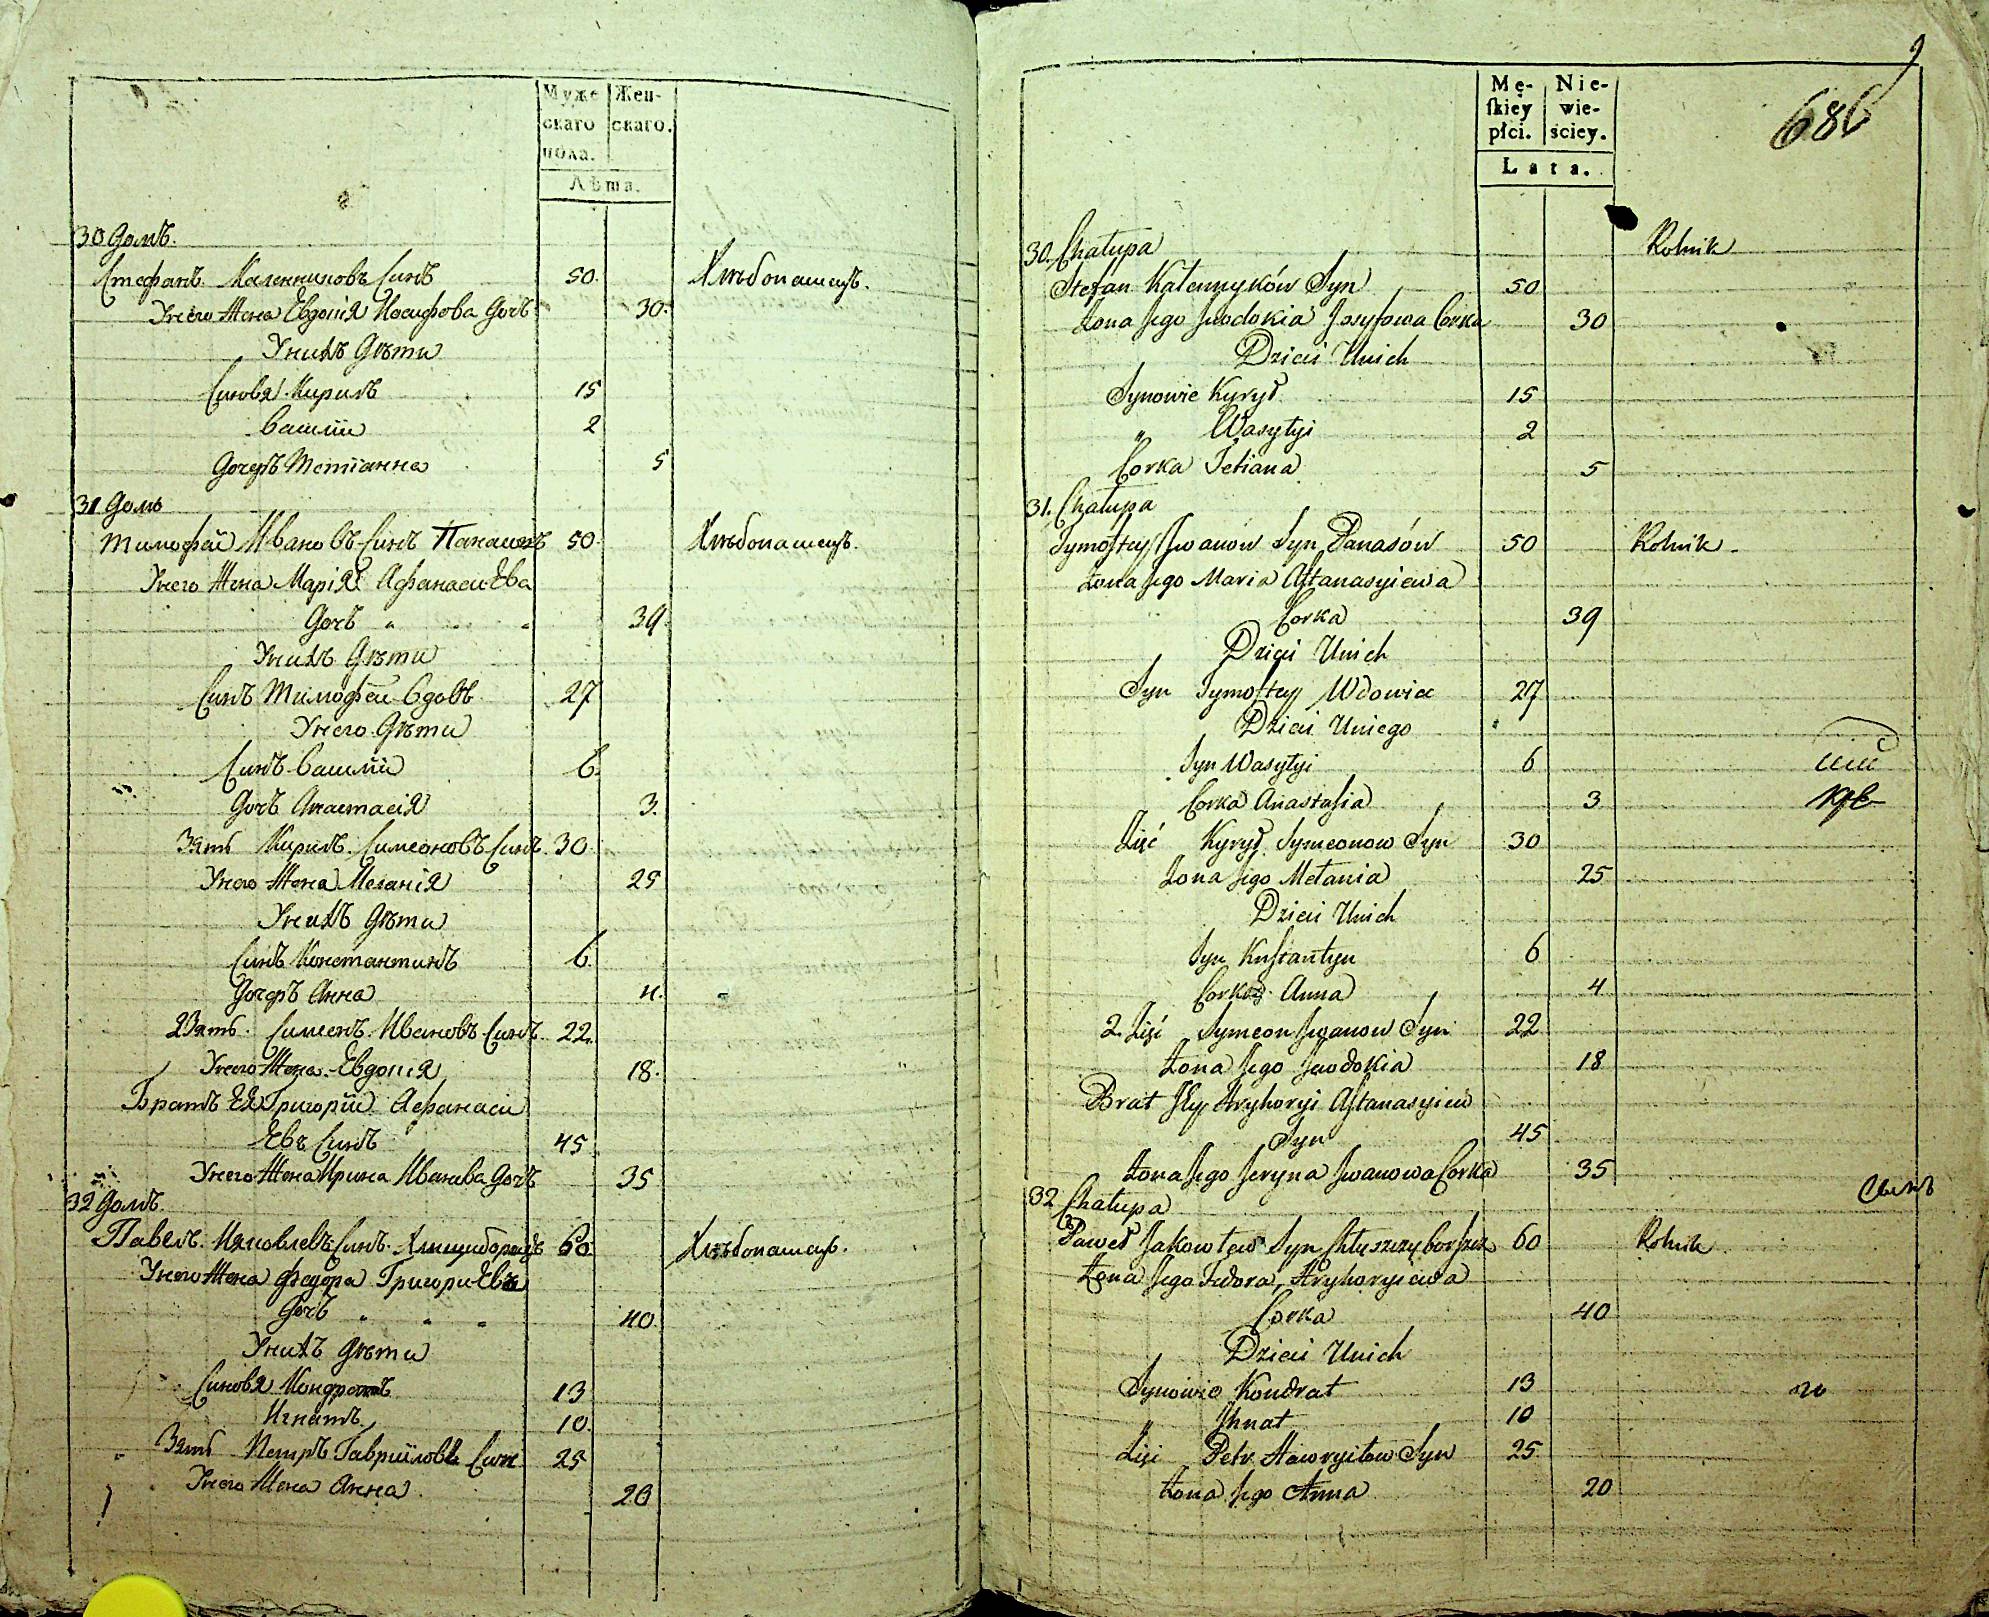 Муже
скаго
пола.
Жен-
скаго.
Лѣта.
30 Домъ.
Стефанъ Каленниковъ Синъ 50. Хлѣбопашецъ.
Унего Жена Евдокія Иосифова Дочъ 30.
Унихъ Дѣти
Синовя Кирилъ 15
Василій 2
Дочерь Тетіанна 5
31 Домъ
Тимофей Ивановъ Синъ Панасовъ 50. Хлѣбопашецъ.
Унего Жена Марія Афанасиева
Дочъ " 39.
Унихъ Дѣти
Синъ Тимофей Вдовъ 27
Унего Дѣти
Синъ Василій 6.
Дочъ Анастасія 3.
Зять Кирилъ Симеоновъ Синъ 30.
Унего Жена Меланія 25
Унихъ Дѣти
Синъ Константинъ 6.
Дочерь Анна 4.
2 Зять. Симеонъ Ивановъ Синъ 22.
Унего Жена Евдокія 18.
Братъ Ея Григорій Афанаси
Евъ Синъ 45
Унего Жена Ирина Иванова Дочъ 35
32 Домъ.
Павелъ Ияковлевъ Синъ 60. Хлѣбопашецъ.
Унего Жена Федора Григориева
Дочъ " " " 40.
Унихъ Дѣти
Синовя Кондратъ 13
Игнатъ 10.
Зять Петръ Гавриіловъ Синъ 25
Унего Жена Анна 20
9
686
Mę-
ſkiey
płci.
Nie-
wie-
ściey.
Lata.
30. Chałupa Rolnik
Stefan Kalennyków Syn 50
Żona Jego Jwdokia Josyfowa Corka 30
Dzieci Unich
Synowie Kyrył 15
" Wasylyi 2
Corka Tetiana 5
31. Chałupa
Tymoftey Jwanow Syn Panasów 50 Rolnik
Żona Jego Maria Aftanasyiewa
Corka 39
Dzieci Unich
Syn Tymoftey Wdowiec 27
Dzieci Uniego
Syn Wasylyi 6
Corka Anastasia 3
Zięć Kyrył Symeonow Syn 30
Żona Jego Melania 25
Dzieci Unich
Syn Knstantyn 6
Corka Anna 4
2. Zięć Symeon Jwanow Syn 22
Żona Jego Jwdokia 18
Brat Jey Hryhoryi Aftanasyiew
Syn 45
Żona Jego Jeryna Jwanowa Corka 35
32 Chałupa
Paweł Jakowlew Syn 60 Rolnik
Żona Jego Fedora Hryhoryiewa
Corka 40
Dzieci Unich
Synowie Kondrat 13
Jhnat 10
Zięć Petr Hawryiłow Syn 25
Żona Jego Anna 20